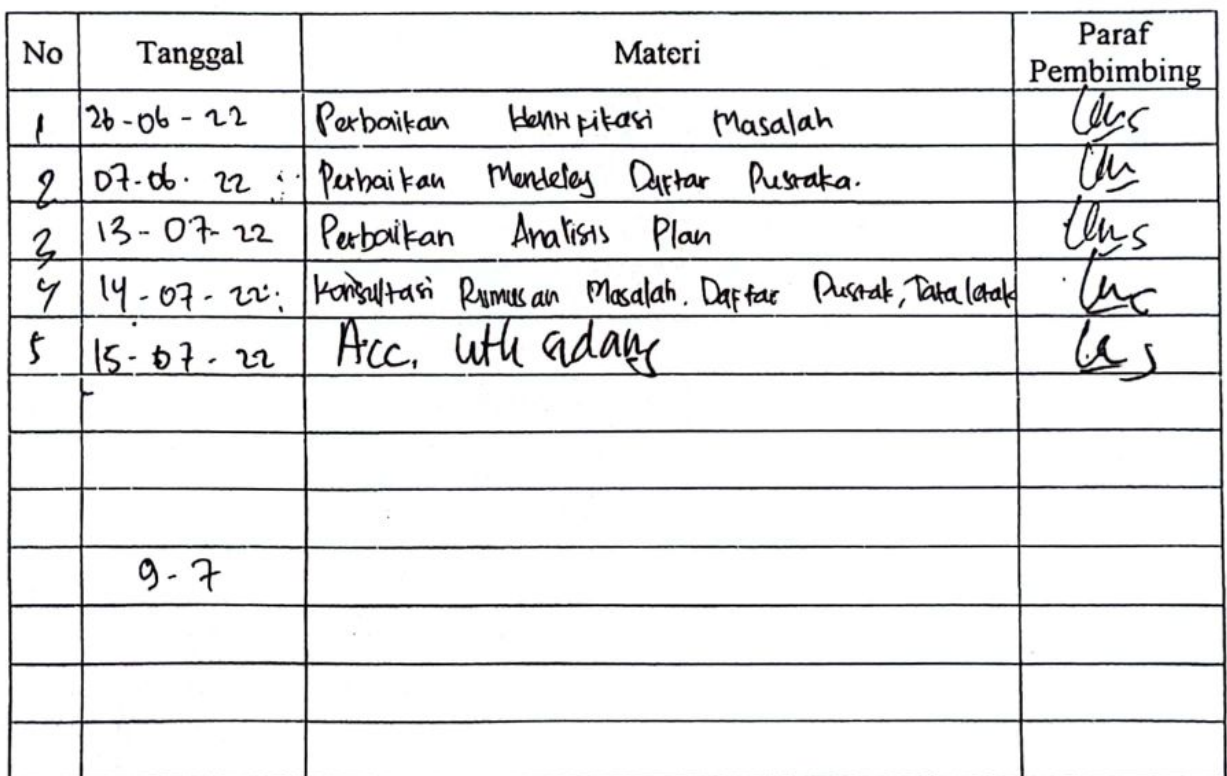 No Tanggal Materi Paraf Pembimbing
1 26-06-22 Perbaikan Identifikasi Masalah
2 07-06-22 Perbaikan Mendeley Daftar Pustaka.
3 13-07-22 Perbaikan Analisis Plan
4 14-07-22 Konsultasi Rumusan Masalah, Daftar Pustak, Tata letak
5 15-07-22 Acc. utk sidang
9-7